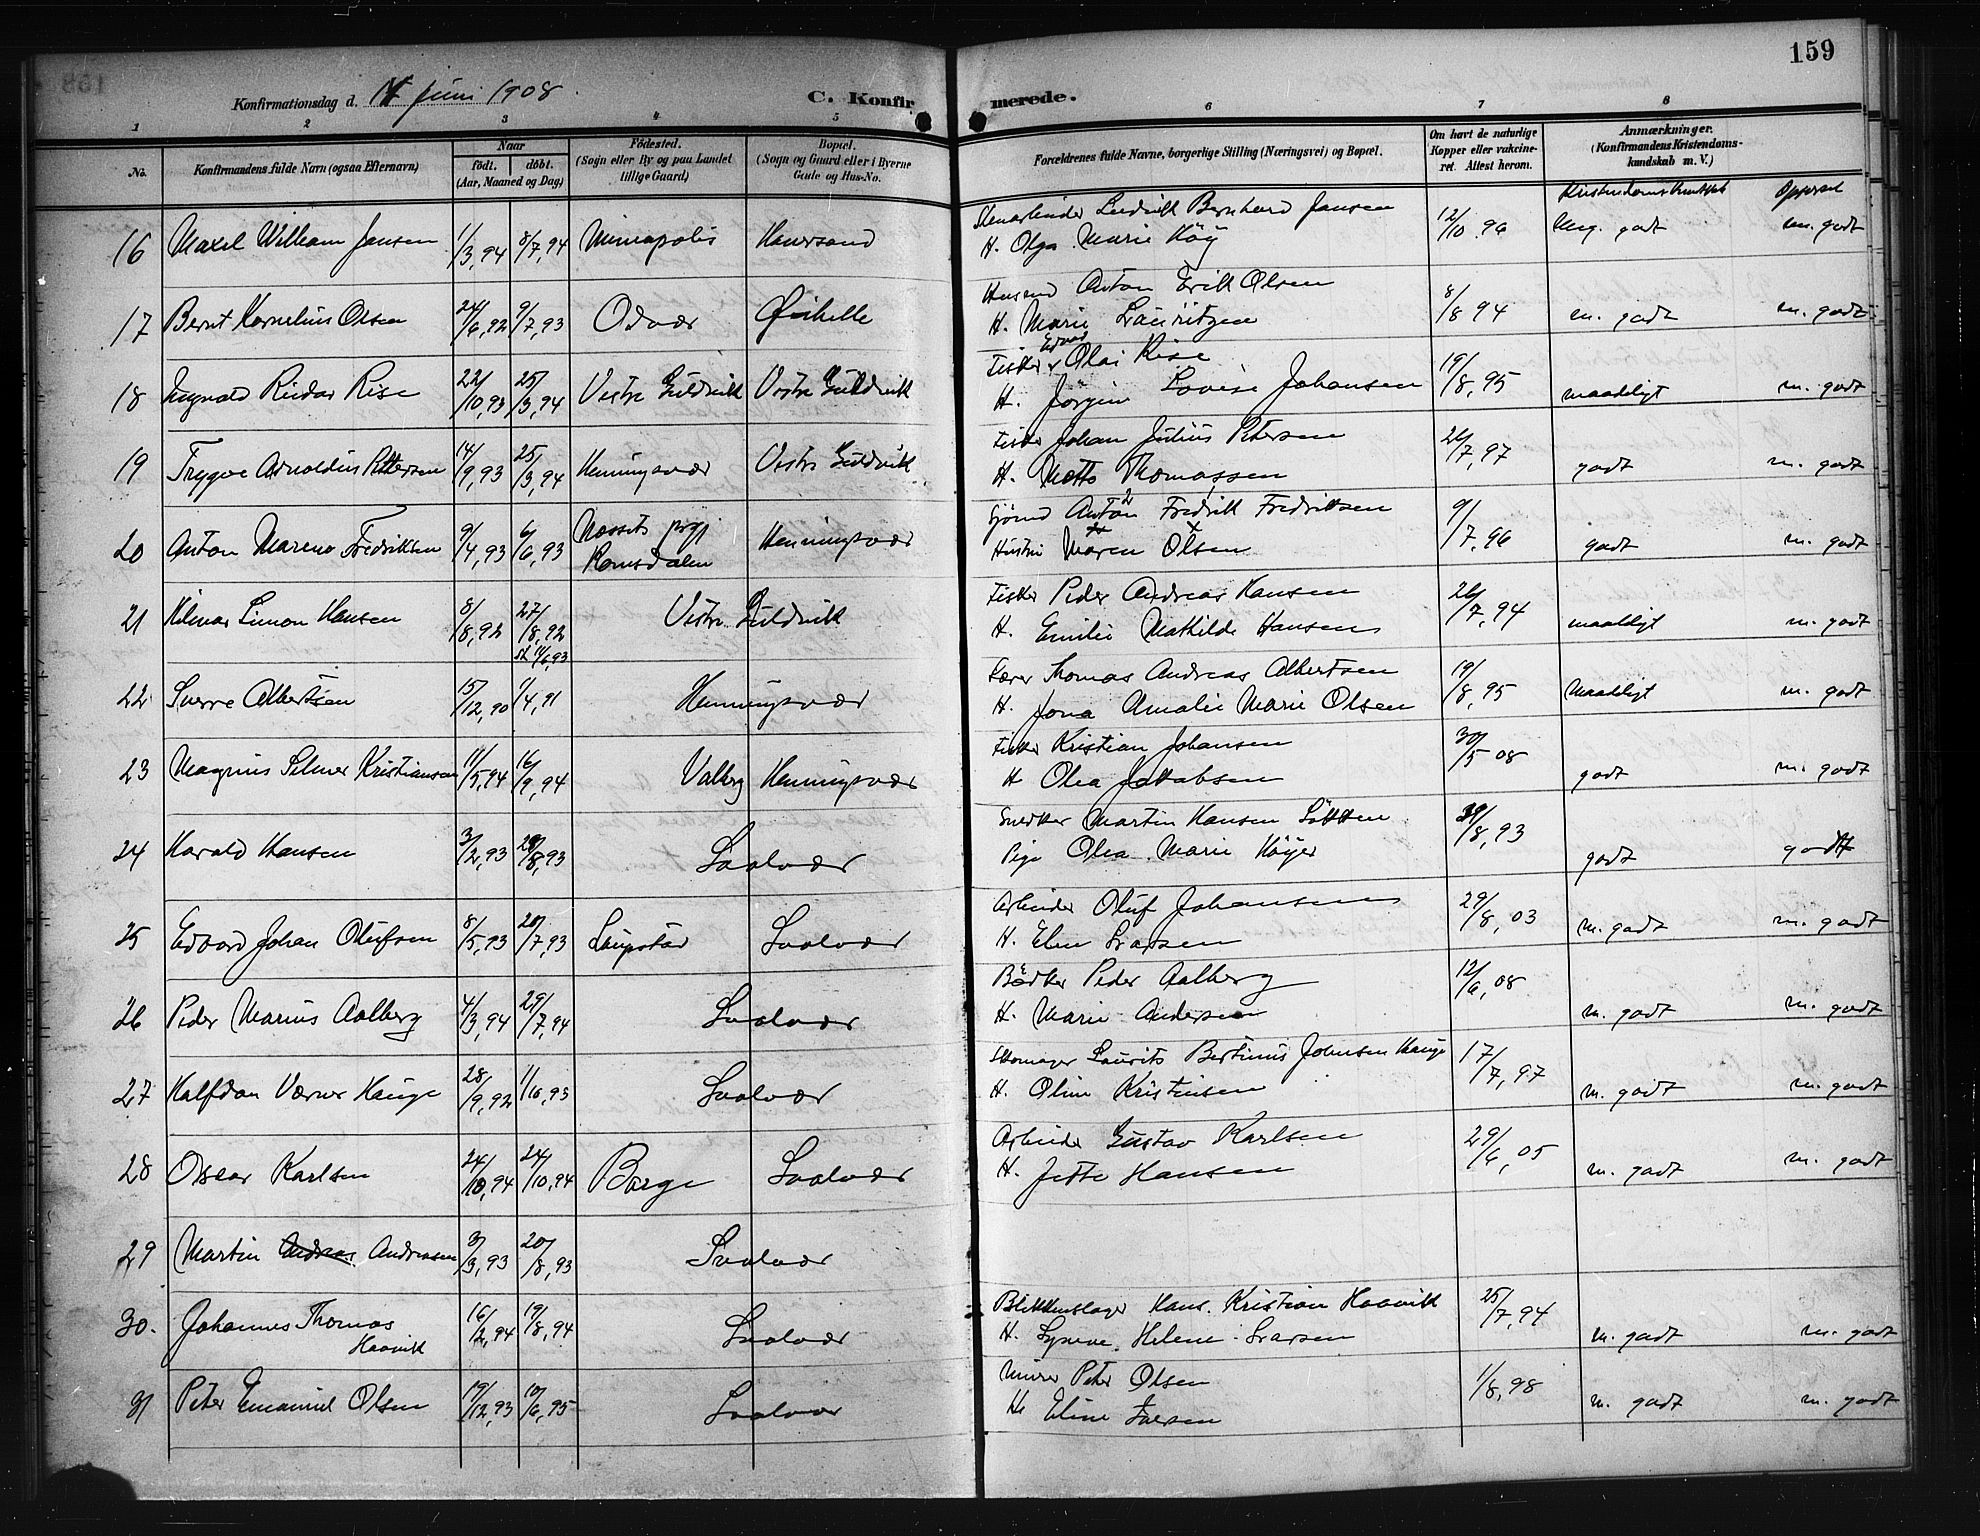 159
Konfirmationsdag d. 14 juni 1908. C. Konfirmerede.
1 2 3 4 5 6 7 8
No. Konfirmandens fulde Navn (ogsaa Efternavn) Naar født. døbt. (Aar, Maaned og Dag) Fødested. (Sogn eller By og paa Landet tillige Gaard) Bopæl. (Sogn og Gaard eller i Byerne Gade og Hus-No. Forældrenes fulde Navne, borgerlige Stilling (Næringsvei) og Bopæl. Om havt de naturlige Kopper eller vakcineret. Attest herom. Anmærkninger. (Konfirmandens Kristendomskundskab m. V.)
Kristendomskundskab Opførsel
16 William Jansen 1/3, 94 8/7, 94 Mineapolis Ludvik Bernhard Jansen 12/10 96 Mg. godt m. godt
H. Olga Marie Høy
17 Bernt Kornelius Olsen 24/6, 92 9/7, 93 Odvær Ørihelle Anton Erik Olsen 8/8 94 m. godt m. godt
H. Marie Lauritzen
18 Reidar Rise 22/10, 93 25/3, 94 Vestre Guldvik Vestre Guldvik Fisker Edvad Olai Rise 19/8, 95 maadeligt m. godt
H. Jørgine Lovise Johansen
19 Trygve Arnoldus Pettersen 14/9, 93 25/3, 94 Henningsvær Vestre Guldvik Fisker Johan Julius Petersen 26/7, 97 godt m. godt
H. Thomassen
20 Anton Mareno Fredriksen 9/4, 93 6/6, 93 prgj Romsdalen Henningsvær Anton Fredrik Fredriksen 9/7, 96 godt m. godt
Hustru Maren Olsen
21 Hilmar Simon Hansen 8/8, 92 27/8, 92 st 11/6, 93 Vestre Guldvik Fisker Peder Andreas Hansen 26/7, 94 maadligt m. godt
H. Emilie Mathilde Hansen
22 Sverre Albertsen 15/12, 90 1/4, 91 Henningsvær Thomas Andreas Albertsen 19/8, 95 Maadeligt m. godt
H. Jona Amalie Marie Olsen
23 Magnus Selmer Kristiansen 11/5, 94 16/9, 94 Valberg Henningsvær Fisker Kristian Johansen 30/5 08 godt m. godt
H Olea Jakobsen
24 Harald Hansen 3/2, 93 /8, 93 Svolvær Snedker Martin Hansen /8, 93 godt godt
Pige Olea Marie Høyer
25 Edvard Johan Olufsen 8/5, 93 20/7, 93 Laupstad Svolvær Arbeider Oluf Johansen 29/8, 03 m. godt m. godt
H. Elen Larsen
26 Peder Marius Aalberg 4/3, 94 29/7, 94 Svolvær Bødker Peder Aalberg 12/6, 08 m. godt m. godt
H. Marie Andersen
27 Halfdan Værner Hauge 28/9, 92 1/10, 93 Svolvær Skomager Laurits Bertinus Johnsen Hauge 17/7, 97 m. godt m. godt
H. Oline Kristensen
28 Oscar Karlsen 24/10, 94 24/10, 94 Borge Svolvær Arbeider Gustav Karlsen 29/6, 05 m. godt m. godt
H. Jette Hansen
29 Martin Andreas Andreasen 3/3, 93 20/8, 93 Svolvær
30. Johannes Thomas Haavik 16/2, 94 19/8, 94 Svolvær Blikkenslager Hans Kristian Haavik 25/7, 94 m. godt m. godt
H. Helene Larsen
31 Peter Emanuel Olsen 19/12, 93 10/6, 95 Svolvær Murer Peter Olsen 1/8, 98 m. godt m. godt
H. Eline Larsen